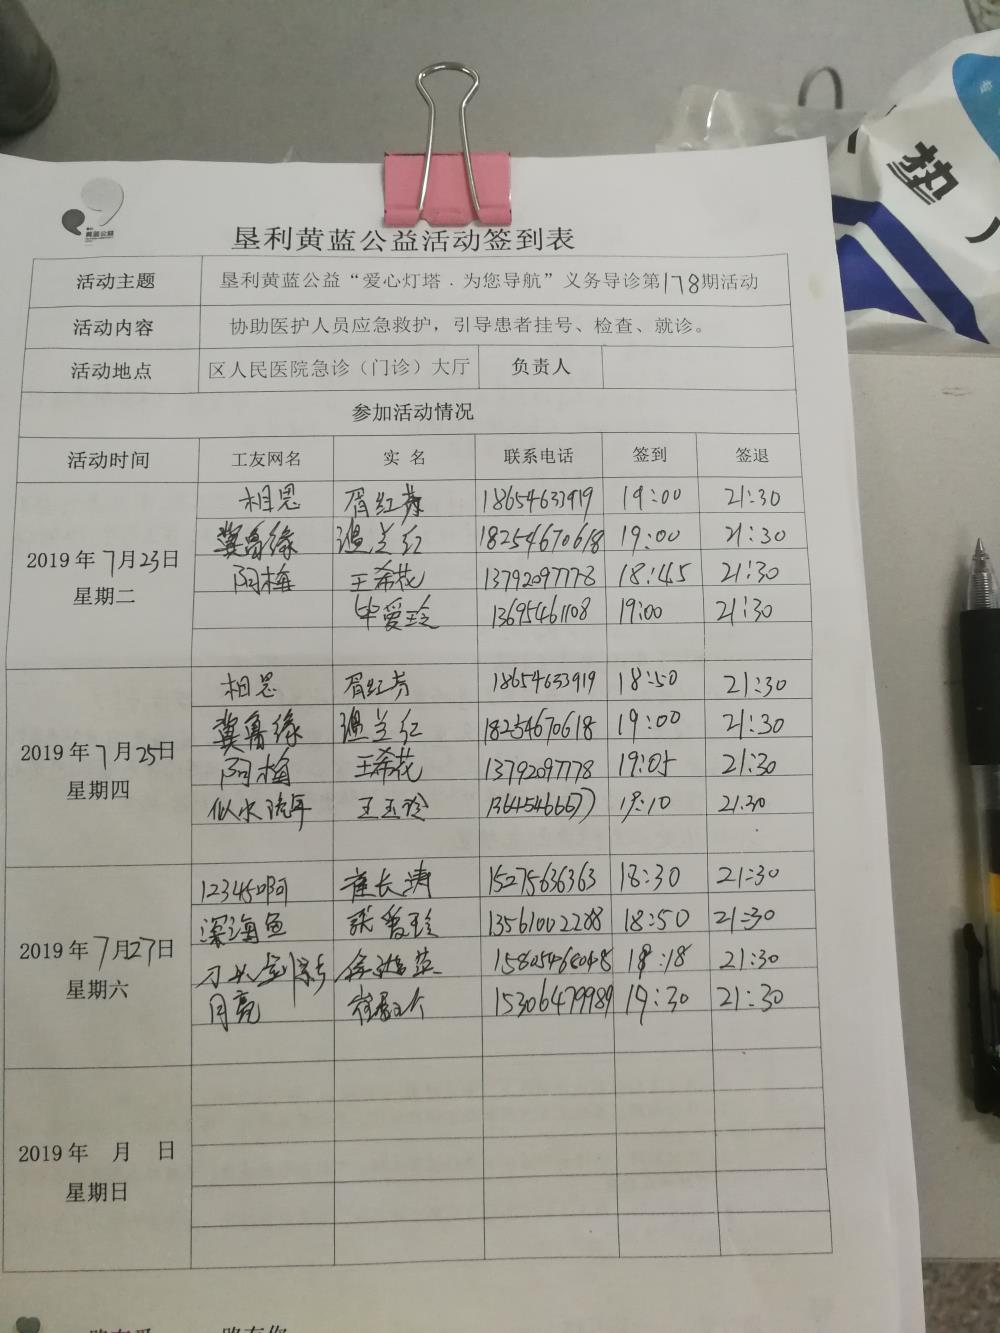 垫
黄蓝公益
垦利黄蓝公益活动签到表
活动主题 垦利黄蓝公益“爱心灯塔．为您导航”义务导诊第178期活动
活动内容 协助医护人员应急救护，引导患者挂号、检查、就诊。
活动地点 区人民医院急诊（门诊）大厅 负责人
参加活动情况
活动时间 工友网名 实 名 联系电话 签到 签退
2019年7月23日
星期二
相思 胥红芳 18654633919 19:00 21:30
冀鲁缘 温兰红 18254670618 19:00 21:30
阿梅 王希花 13792097778 18:45 21:30
毕爱玲 13695461108 19:00 21:30
2019年7月25日
星期四
相思 胥红芳 18654633919 18:50 21:30
冀鲁缘 温兰红 18254670618 19:00 21:30
阿梅 王希花 13792097778 19:05 21:30
似水流年 王玉玲 13645466677 19:10 21:30
2019年7月27日
星期六
12345啊 崔长涛 15275636363 18:30 21:30
深海鱼 张爱玲 13561002288 18:50 21:30
15805468048 18:18 21:30
月亮 15306479989 19:30 21:30
2019年 月 日
星期日